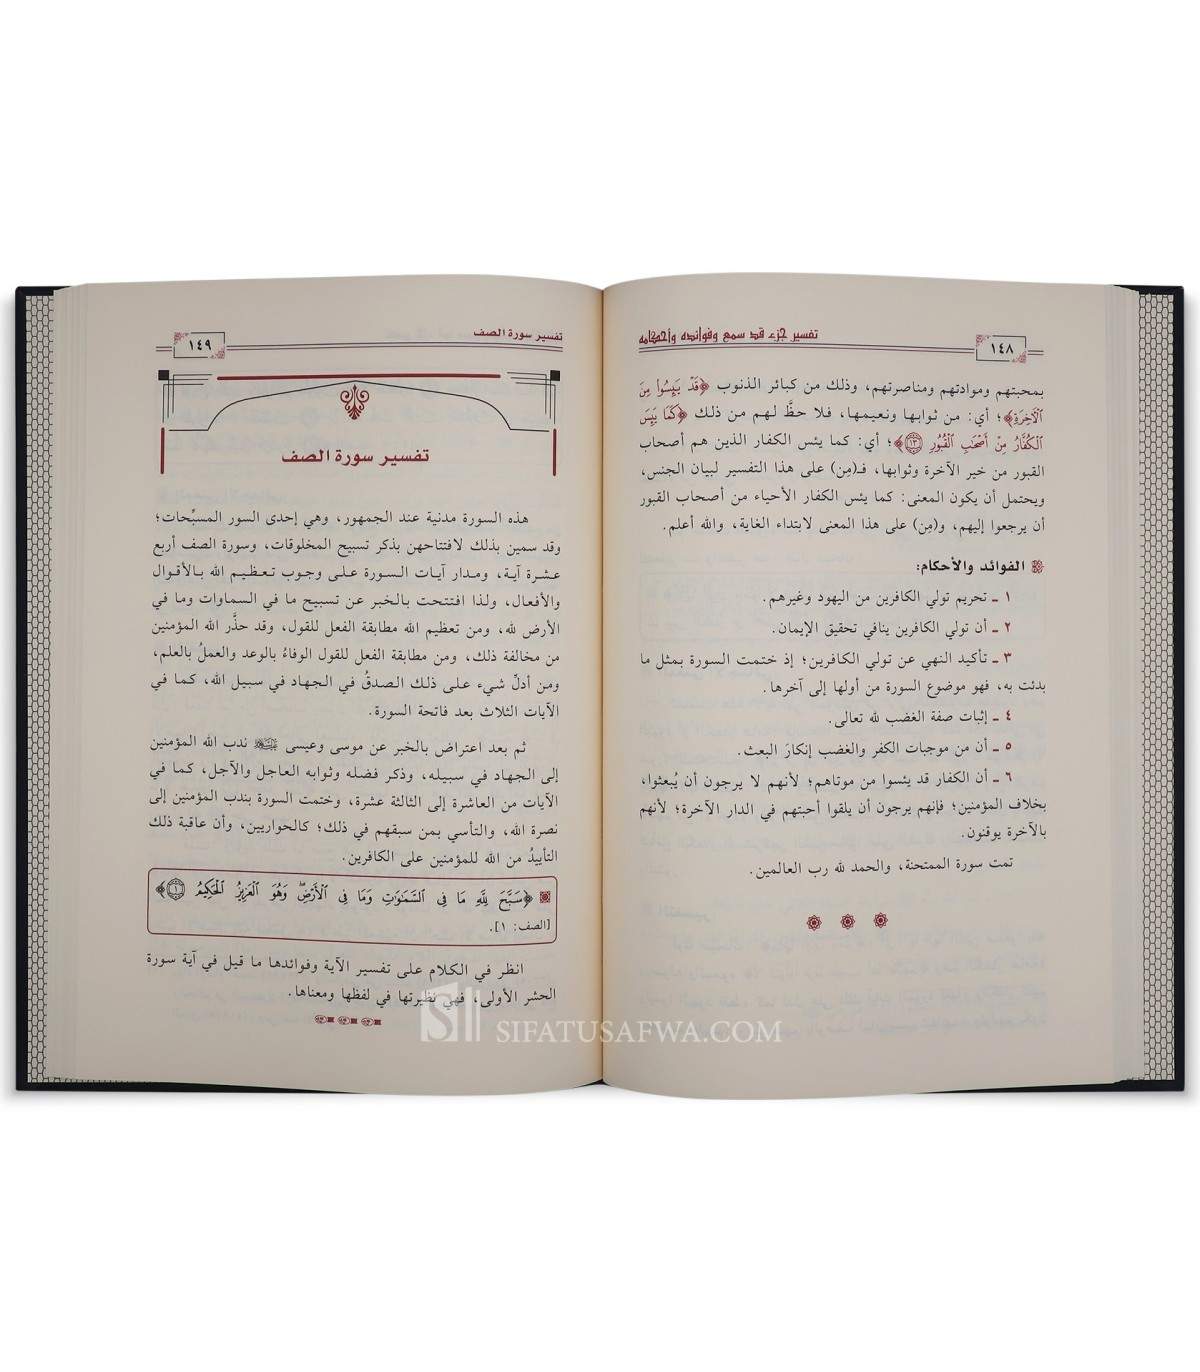 تفسير جزء قد سمع وفوائده وأحكامه
١٤٨
بمحبتهم وموادتهم ومناصرتهم، وذلك من كبائر الذنوب ﴿قَدْ يَئِسُوا۟ مِنَ
ٱلْءَاخِرَةِ﴾؛ أي: من ثوابها ونعيمها، فلا حظَّ لهم من ذلك ﴿كَمَا يَئِسَ
ٱلْكُفَّارُ مِنْ أَصْحَٰبِ ٱلْقُبُورِ ١٣﴾؛ أي: كما يئس الكفار الذين هم أصحاب
القبور من خير الآخرة وثوابها، فـ(مِن) على هذا التفسير لبيان الجنس،
ويحتمل أن يكون المعنى: كما يئس الكفار الأحياء من أصحاب القبور
أن يرجعوا إليهم، و(مِن) على هذا المعنى لابتداء الغاية، والله أعلم.
الفوائد والأحكام:
١ ـ تحريم تولي الكافرين من اليهود وغيرهم.
٢ ـ أن تولي الكافرين ينافي تحقيق الإيمان.
٣ ـ تأكيد النهي عن تولي الكافرين؛ إذ ختمت السورة بمثل ما
بدئت به، فهو موضوع السورة من أولها إلى آخرها.
٤ ـ إثبات صفة الغضب لله تعالى.
٥ ـ أن من موجبات الكفر والغضب إنكارَ البعث.
٦ ـ أن الكفار قد يئسوا من موتاهم؛ لأنهم لا يرجون أن يُبعثوا،
بخلاف المؤمنين؛ فإنهم يرجون أن يلقوا أحبتهم في الدار الآخرة؛ لأنهم
بالآخرة يوقنون.
تمت سورة الممتحنة، والحمد لله رب العالمين.
تفسير سورة الصف
١٤٩
تفسير سورة الصف
هذه السورة مدنية عند الجمهور، وهي إحدى السور المسبِّحات؛
وقد سمين بذلك لافتتاحهن بذكر تسبيح المخلوقات، وسورة الصف أربع
عشرة آية، ومدار آيات السورة على وجوب تعظيم الله بالأقوال
والأفعال، ولذا افتتحت بالخبر عن تسبيح ما في السماوات وما في
الأرض لله، ومن تعظيم الله مطابقة الفعل للقول، وقد حذَّر الله المؤمنين
من مخالفة ذلك، ومن مطابقة الفعل للقول الوفاءُ بالوعد والعملُ بالعلم،
ومن أدلِّ شيء على ذلك الصدقُ في الجهاد في سبيل الله، كما في
الآيات الثلاث بعد فاتحة السورة.
ثم بعد اعتراض بالخبر عن موسى وعيسى ندب الله المؤمنين
إلى الجهاد في سبيله، وذكر فضله وثوابه العاجل والآجل، كما في
الآيات من العاشرة إلى الثالثة عشرة، وختمت السورة بندب المؤمنين إلى
نصرة الله، والتأسي بمن سبقهم في ذلك؛ كالحواريين، وأن عاقبة ذلك
التأييدُ من الله للمؤمنين على الكافرين.
﴿سَبَّحَ لِلَّهِ مَا فِى ٱلسَّمَٰوَٰتِ وَمَا فِى ٱلْأَرْضِ ۖ وَهُوَ ٱلْعَزِيزُ ٱلْحَكِيمُ ١﴾
[الصف: ١].
انظر في الكلام على تفسير الآية وفوائدها ما قيل في آية سورة
الحشر الأولى، فهي نظيرتها في لفظها ومعناها.
SIFATUSAFWA.COM